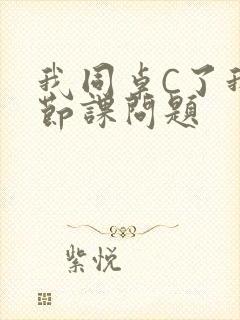 我同桌C了我
节课问题
紫悦